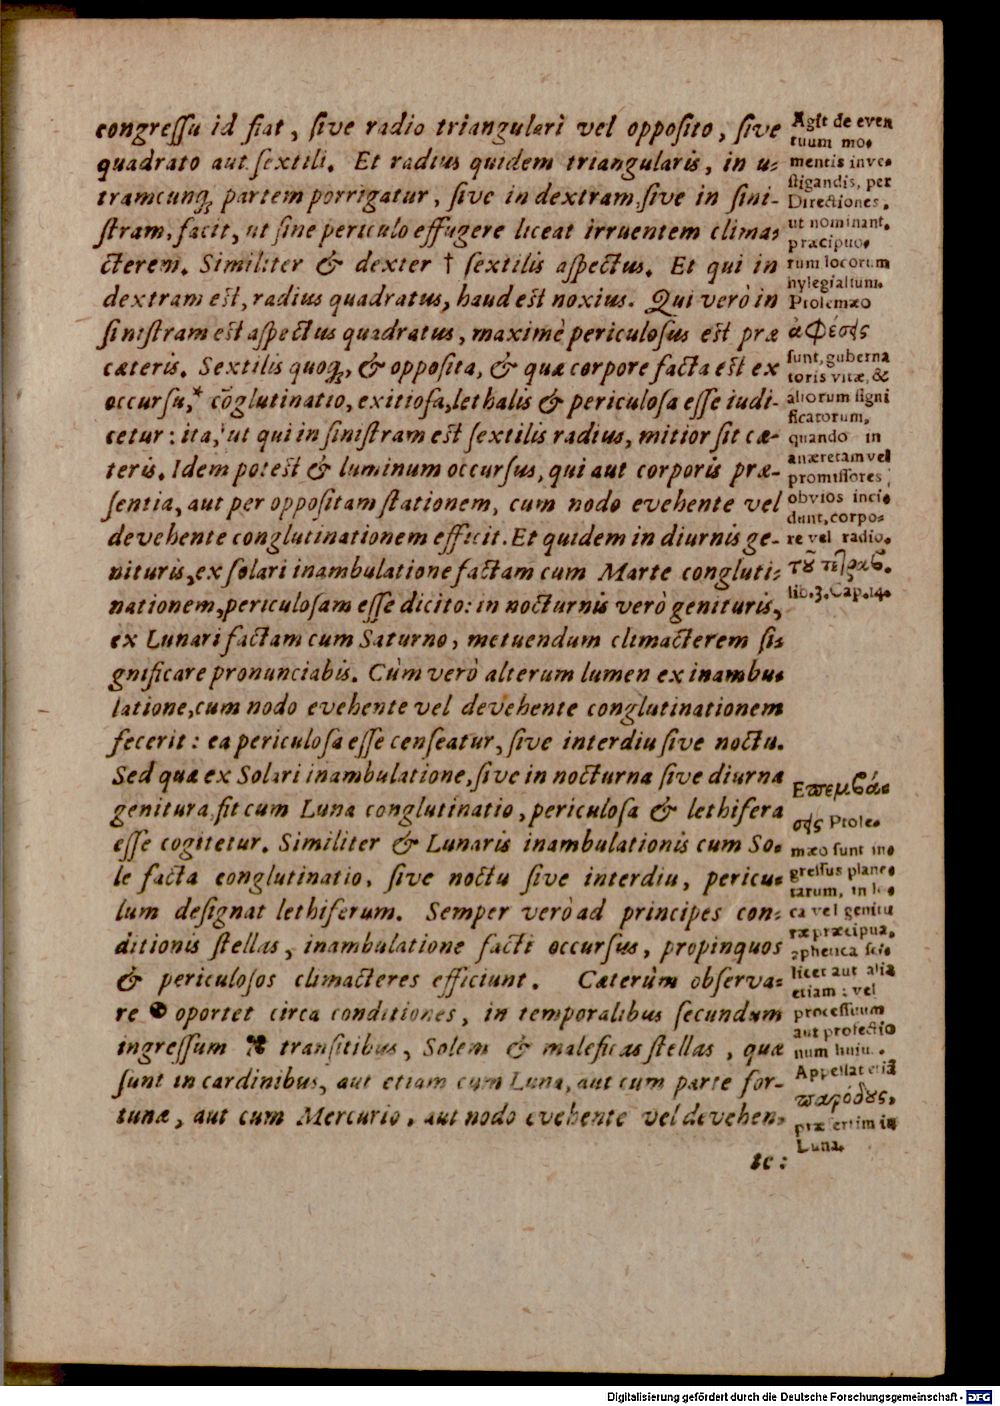 congreſſu id fiat, ſive radio triangulari vel oppoſito, ſive
quadrato aut ſextili. Et radius quidem triangularis, in u-
tramcunq; partem porrigatur, ſive in dextram, ſive in ſini-
ſtram, facit, ut ſine periculo effugere liceat irruentem clima-
cterem. Similiter & dexter † ſextilis aſpectus. Et qui in
dextram eſt, radius quadratus, haud eſt noxius. Qui verò in
ſiniſtram eſt aſpectus quadratus, maximè periculoſus eſt præ
cæteris. Sextilis quoq;, & oppoſita, & quæ corpore facta eſt ex
occurſu, * cõglutinatio, exitioſa, lethalis & periculoſa eſſe iudi-
cetur: ita, ut qui in ſiniſtram eſt ſextilis radius, mitior ſit cæ-
teris. Idem poteſt & luminum occurſus, qui aut corporis præ-
ſentia, aut per oppoſitam ſtationem, cum nodo evehente vel
devehente conglutinationem efficit. Et quidem in diurnis ge-
nituris, ex ſolari inambulatione factam cum Marte congluti-
nationem, periculoſam eſſe dicito: in nocturnis verò genituris,
ex Lunari factam cum Saturno, metuendum climacterem ſi-
gnificare pronunciabis. Cùm verò alterum lumen ex inambu-
latione, cum nodo evehente vel devehente conglutinationem
fecerit: ea periculoſa eſſe cenſeatur, ſive interdiu ſive noctu.
Sed quæ ex Solari inambulatione, ſive in nocturna ſive diurna
genitura, fit cum Luna conglutinatio, periculoſa & lethifera
eſſe cogitetur. Similiter & Lunaris inambulationis cum So-
le facta conglutinatio, ſive noctu ſive interdiu, pericu-
lum deſignat lethiferum. Semper verò ad principes con-
ditionis ſtellas, inambulatione facti occurſus, propinquos
& periculoſos climacteres efficiunt. Cæterùm obſerva-
re oportet circa conditiones, in temporalibus ſecundum
ingreſſum tranſitibus, Solem & maleficas ſtellas, quæ
ſunt in cardinibus, aut etiam cum Luna, aut cum parte for-
tunæ, aut cum Mercurio, aut nodo evehente vel devehen-
te:
Agit de even
tuum mo-
mentis inve-
ſtigandis, per
Directiones,
ut nominant,
præcipuo-
rum locorum
hylegialium.
Ptolemæo
ἀφέσις
ſunt, guberna
toris vitæ, &
aliorum ſigni
ficatorum,
quando in
anæretam vel
promiſſores
obvios inci-
dunt, corpo-
re vel radio.
τοῦ τετραβ.
lib. 3. Cap. 14.
Επεμβά-
σεις Ptole-
mæo ſunt in-
greſſus plane-
tarum, in lo-
ca vel genitu
ræ præcipua,
ſphærica ſci-
licet aut alia
etiam: vel
proceſſuum
aut profectio
num huiu.
Appellat etiã
παρόδους,
præſertim in
Luna.
Digitalisierung gefördert durch die Deutsche Forschungsgemeinschaft - DFG